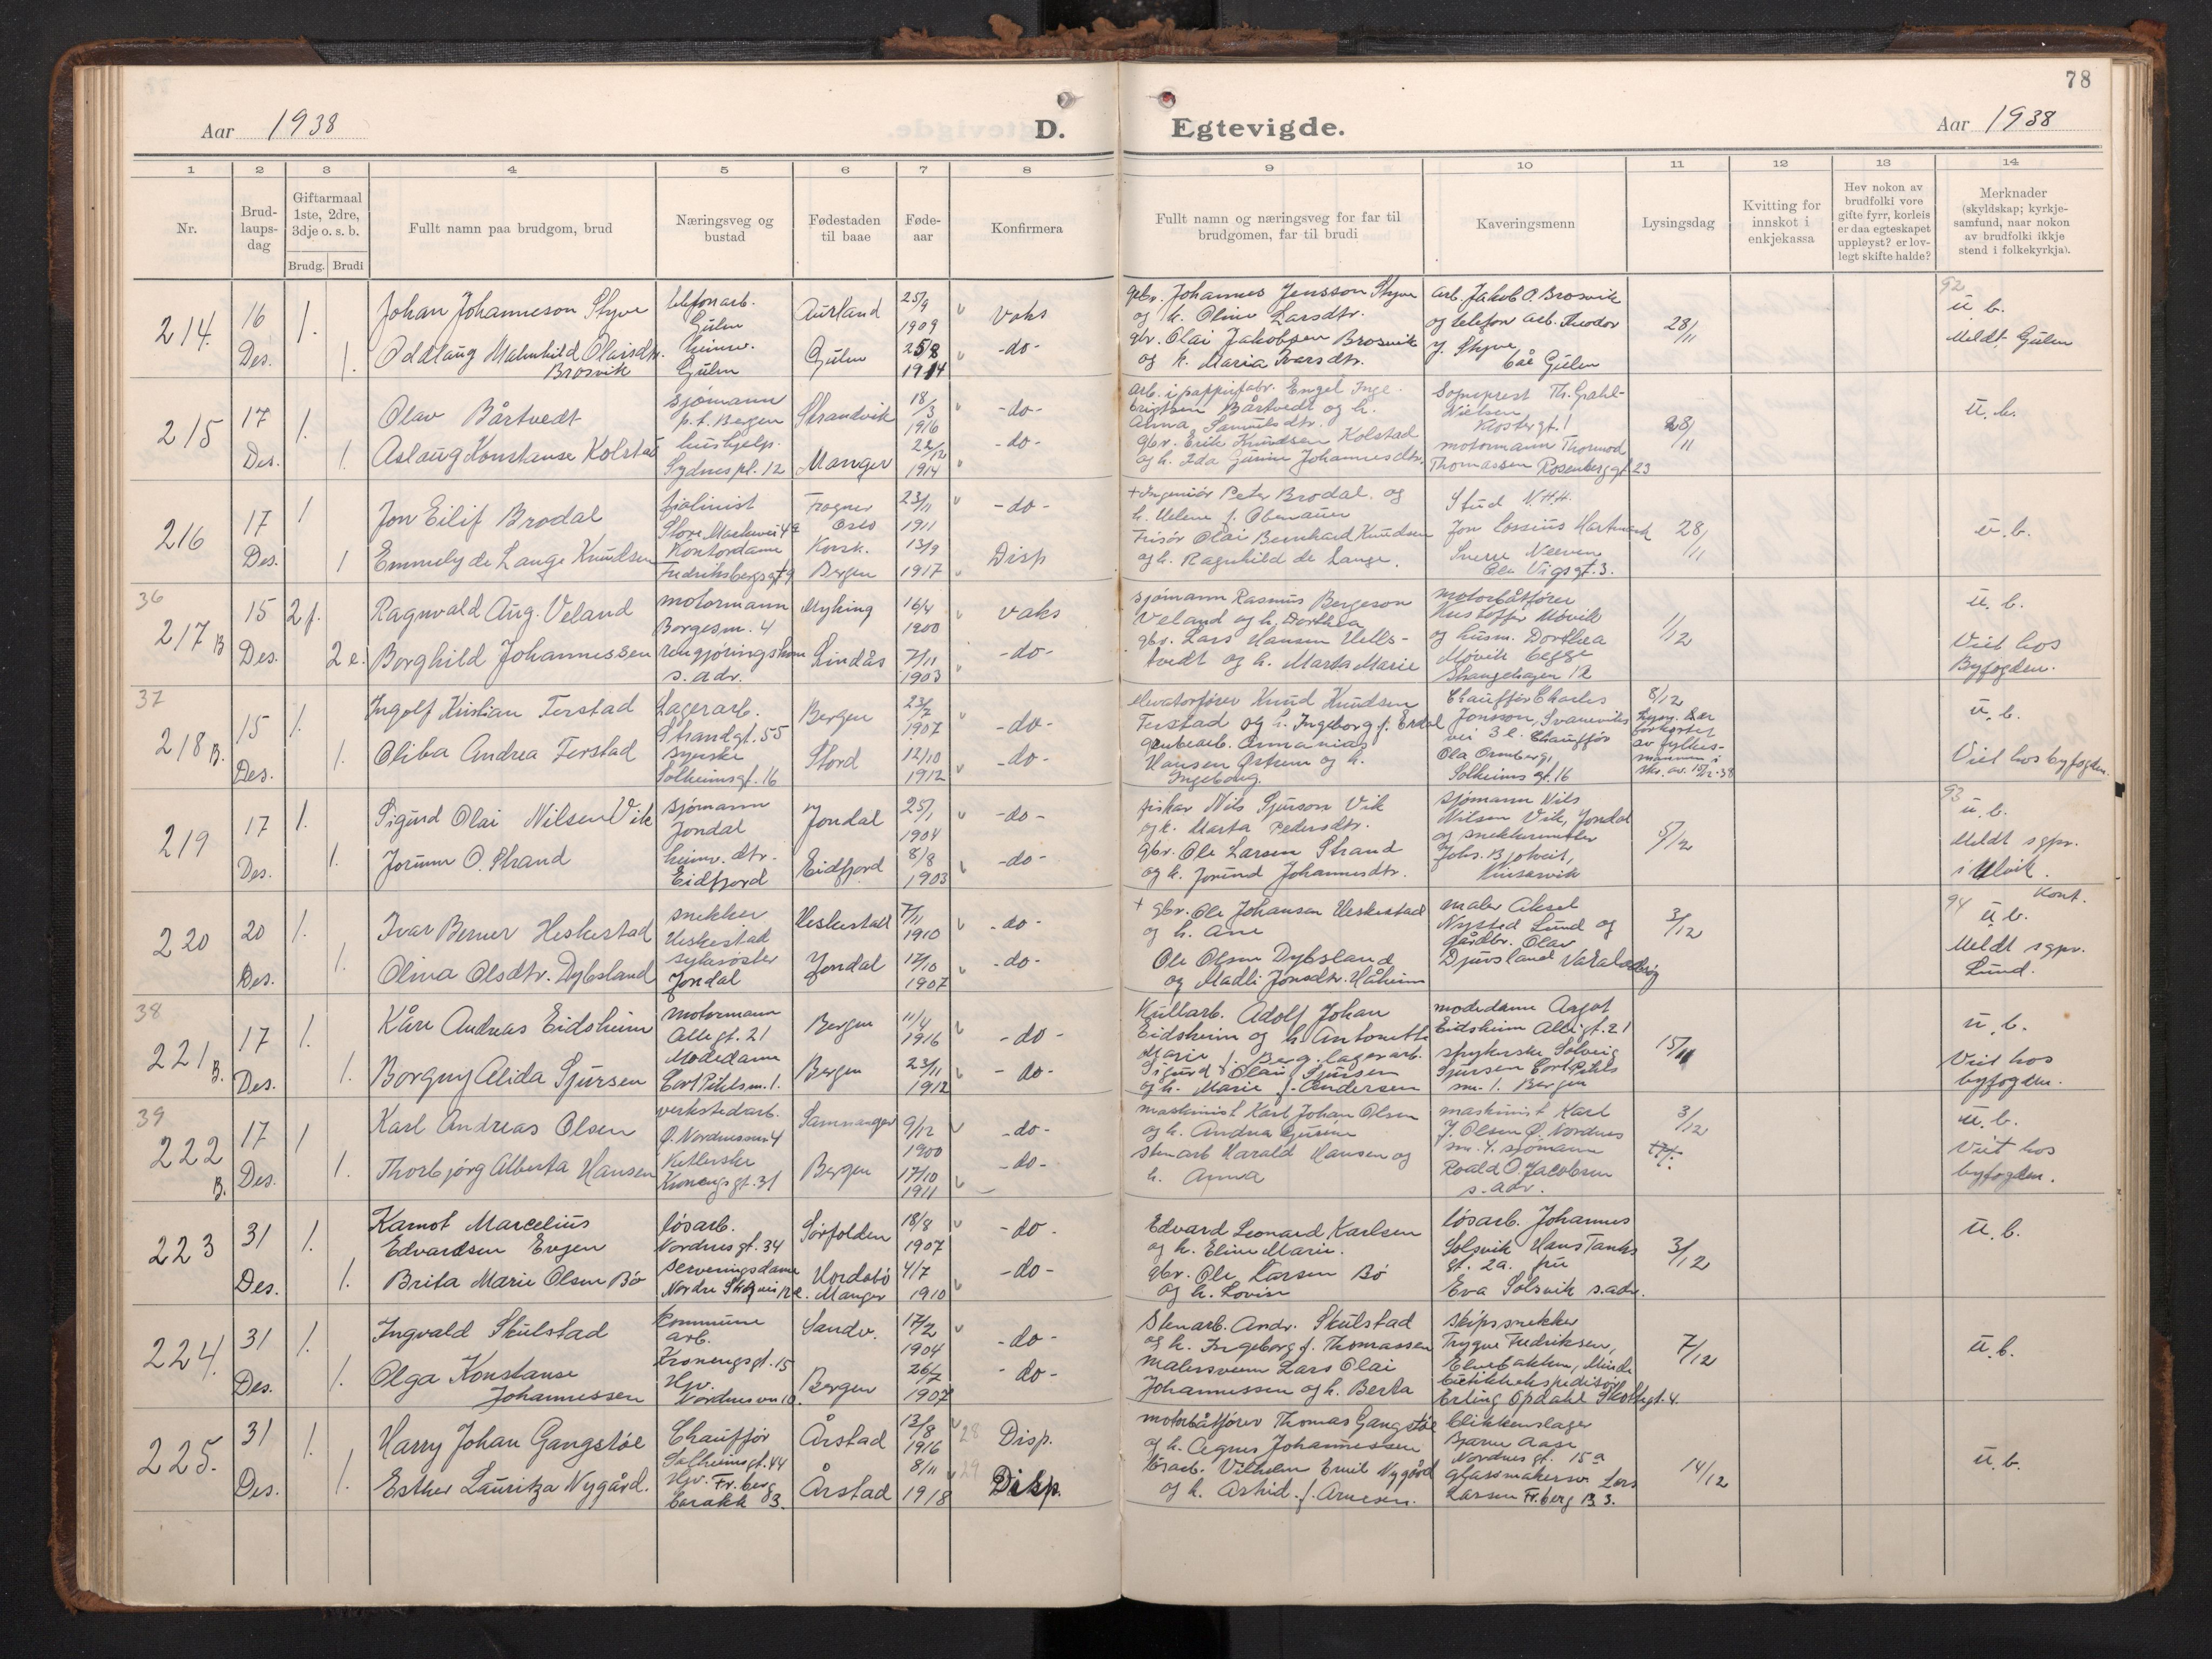 78
Aar 1938
D.
Egtevigde.
Aar 1938
1 2 3 4 5 6 7 8
Nr.
Brud-
laups-
dag
Giftarmaal
1ste, 2dre,
3dje o. s. b.
Brudg. Brudi
Fullt namn paa brudgom, brud
Næringsveg og
bustad
Fødestaden
til baae
Føde-
aar
Konfirmera
9 10 11 12 13 14
Fullt namn og næringsveg for far til
brudgomen, far til brudi
Kaveringsmenn
Lysingsdag
Kvitting for
innskot i
enkjekassa
Hev nokon av
brudfolki vore
gifte fyrr, korleis
er daa egteskapet
uppløyst? er lov-
legt skifte halde?
Merknader
(skyldskap; kyrkje-
samfund, naar nokon
av brudfolki ikkje
stend i folkekyrkja).
214. 16 Des. 1. Johan Johanneson Styve telefonarb. Gulen Aurland 25/9 1909 Vaks
1. Oddlaug Malmhild Olaisdtr. Brosvik heimv. Gulen Gulen 25/8 1914 -do-
gbr. Johannes Jensson Styve
og h. Oline Larsdtr.
gbr. Olai Jakobsen Brosvik
og h. Maria Ivarsdtr.
arb. Jakob O. Brosvik
og telefon arb. Theodor
J. Styve
båe Gulen
28/11
92
u. b.
Meldt Gulen
215 17 Des. 1. Olav Bårtvedt sjømann p.t. Bergen Strandvik 18/3 1916 -do-
1. Aslaug Konstanse Kolstad hushjelp. Sydnespl. 12 Manger 22/12 1914 -do-
arb. i pappfabr. Engel Inge
Brigtsen Bårtvedt og h.
Anna Samuelsdtr.
gbr. Erik Knudsen Kolstad
og h. Ida Gurine Johannesdtr.
Sogneprest Th. Grahl-
Nielsen
Klostergt. 1
motormann Thormod
Thomassen Rosenberggt. 23
28/11
u. b.
216 17 Des. 1 Jon Eilif Brodal fiolinist Store Markevei 4a Frogner Oslo 23/11 1911 -do-
1 Emmely de Lange Knudsen Kontordame Fredriksbergsgt 9 Korsk. Bergen 13/9 1917 Disp
+ Ingeniør Peter Brodal og
h. Helene f. Obenauer
Frisør Olai Bernhard Knudsen
og h. Ragnhild de Lange.
Stud N.H.H.
Jon Cossius Hartmark
Sverre Neeven
Ole Vigsgt. 3.
28/11
u. b.
36
217 B 15 Des. 2 f. Ragnvald Aug. Veland motormann Borgesm. 4 Myking 16/4 1900 vaks
2 e. Borghild Johannessen rengjøringskone s. adr. Lindås 7/11 1903 -do-
sjømann Rasmus Bergeson
Veland og h. Dorthea
gbr. Lars Hansen Helle-
tvedt og h. Marta Marie
motorbåtfører
Kristoffer Møvik
og husm. Dorthea
Møvik begge
Skangehagen 12
1/12
u. b.
Viet hos
Byfogden.
37
218 B. 15 Des. 1. Ingolf Kristian Terstad Lagerarb. Strandgt. 55 Bergen 23/7 1907 -do-
1. Oliba Andrea Terstad syerske Solheimsgt. 16 Stord 12/10 1912 -do-
elevatorfører Knud Knudsen
Terstad og h. Ingeborg f. Erdal
grubearb. Annanias
Hansen Østrem og h.
Ingeborg
Chauffør Charles
Jonsson, Svaneviks
vei 3 e. Chauffør
Ola Ormberg,
Solheims gt. 16
8/12
Lysn. bær
forkortet
av fylkes-
mannen i
skr. av. 15/12-38
u. b.
Viet hos byfogden.
219 17 Des. 1. Sigurd Olai Nilsen Vik sjømann Jondal Jondal 25/1 1904 -do-
1. Jorunn O. Strand heimv. dtr. Eidfjord Eidfjord 8/8 1903 -do-
fisker Nils Sjurson Vik
og h. Marta Pedersdtr.
gbr. Ole Larsen Strand
og h. Jorund Johannesdtr.
sjømann Nils
Nilsen Vik, Jondal
og snekkermester
Johs. Bjotveit,
Kinsarvik
5/12
93
u. b.
Meldt sgpr.
i Ulvik.
220 20 Des. 1. Ivar Berner Heskestad snekker Heskestad Heskestad 7/11 1910 -do-
1. Olina Olsdtr. Dybsland sykesøster Jondal Jondal 17/10 1907 -do-
+ gbr. Ole Johansen Heskestad
og h. Ane
Ole Olsen Dybsland
og Madli Jonsdtr. Håheim
maler Aksel
Nysted Lund og
gårdbr. Olav
Djuvsland
3/12
94 Kont.
u. b.
Meldt sgpr.
Lund.
38
221 B. 17 Des. 1. Kåre Andreas Eidsheim motormann Allegt. 21 Bergen 11/4 1916 -do-
1. Borgny Alida Sjursen Modedame Cort Pihlsm. 1. Bergen 23/11 1912 -do-
Kullarb. Adolf Johan
Eidsheim og h. Antonette
Marie f. Berg. lagerarb.
Sigurd Olai Sjursen
og h. Marie f. Andersen
modedame Argot
Eidsheim Allegt. 21
strykerske Solveig
Sjursen Cort Pihls
sm. 1. Bergen
15/11
u. b.
Viet hos
byfogden.
39
222 B. 17 Des. 1 Karl Andreas Olsen verkstedarb. Ø. Nordnessm. 4 Samnanger 9/12 1900 -do-
1. Thorbjørg Alberta Hansen Kitlerske Kronengsgt. 31 Bergen 17/10 1911 -do-
maskinist Karl Johan Olsen
og h. Andrea Gurine
stenarb Harald Hansen og
h. Anna
maskinist Karl
J. Olsen Ø. Nordnes
sm. 4. sjømann
Roald O. Jacobsen
s. adr.
3/12
u. b.
Viet hos
byfogden.
223 31 Des. 1. Karnot Marcelius Edvardsen Evjen løsarb. Nordnesgt. 34 Sørfolden 18/8 1907 -do-
1. Brita Marie Olsen Bø serveringsdame Nordre Skogvei 12 e. Hordabø Manger 4/7 1910 -do-
Edvard Leonard Karlsen
og h. Eline Marie.
gbr. Ole Larsen Bø
og h. Lovise
løsarb. Johannes
Solsvik Hans Tanks
gt. 2a. fru
Eva Solsvik s. adr.
3/12
u. b.
224. 31 Des. 1. Ingvald Skulstad kommune arb. Kronengsgt. 15 Sandv. 17/2 1904 -do-
1. Olga Konstanse Johannessen Hjv. Nordnesvn 10. Bergen 26/7 1907 -do-
Stenarb. Andr. Skulstad
og h. Ingeborg f. Thomassen
Malersvenn Lars Olai
Johannessen og h. Berta
skipssnekker
Trygve Fredriksen,
Elvebakken, Minde
butikkekspeditør
Erling Opdahl Skottegt. 4.
7/12
u. b.
225. 31 Des. 1. Harry Johan Gangstøe Chauffør Solheimsgt. 44 Årstad 13/8 1916 28 Disp.
1. Esther Lauritza Nygård. Hjv. Fr. berg barakk 3. Årstad 8/11 1918 29 Disp.
motorbåtfører Thomas Gangstøe
og h. Agnes Johannessen
Løsarb. Vilhelm Emil Nygård
og h. Astrid f. Arnesen.
blikkenslager
Bjarne Aase
Nordnes gt. 15 a
glassmakersv. Lars
Larsen Fr. berg B 3.
14/12
u. b.